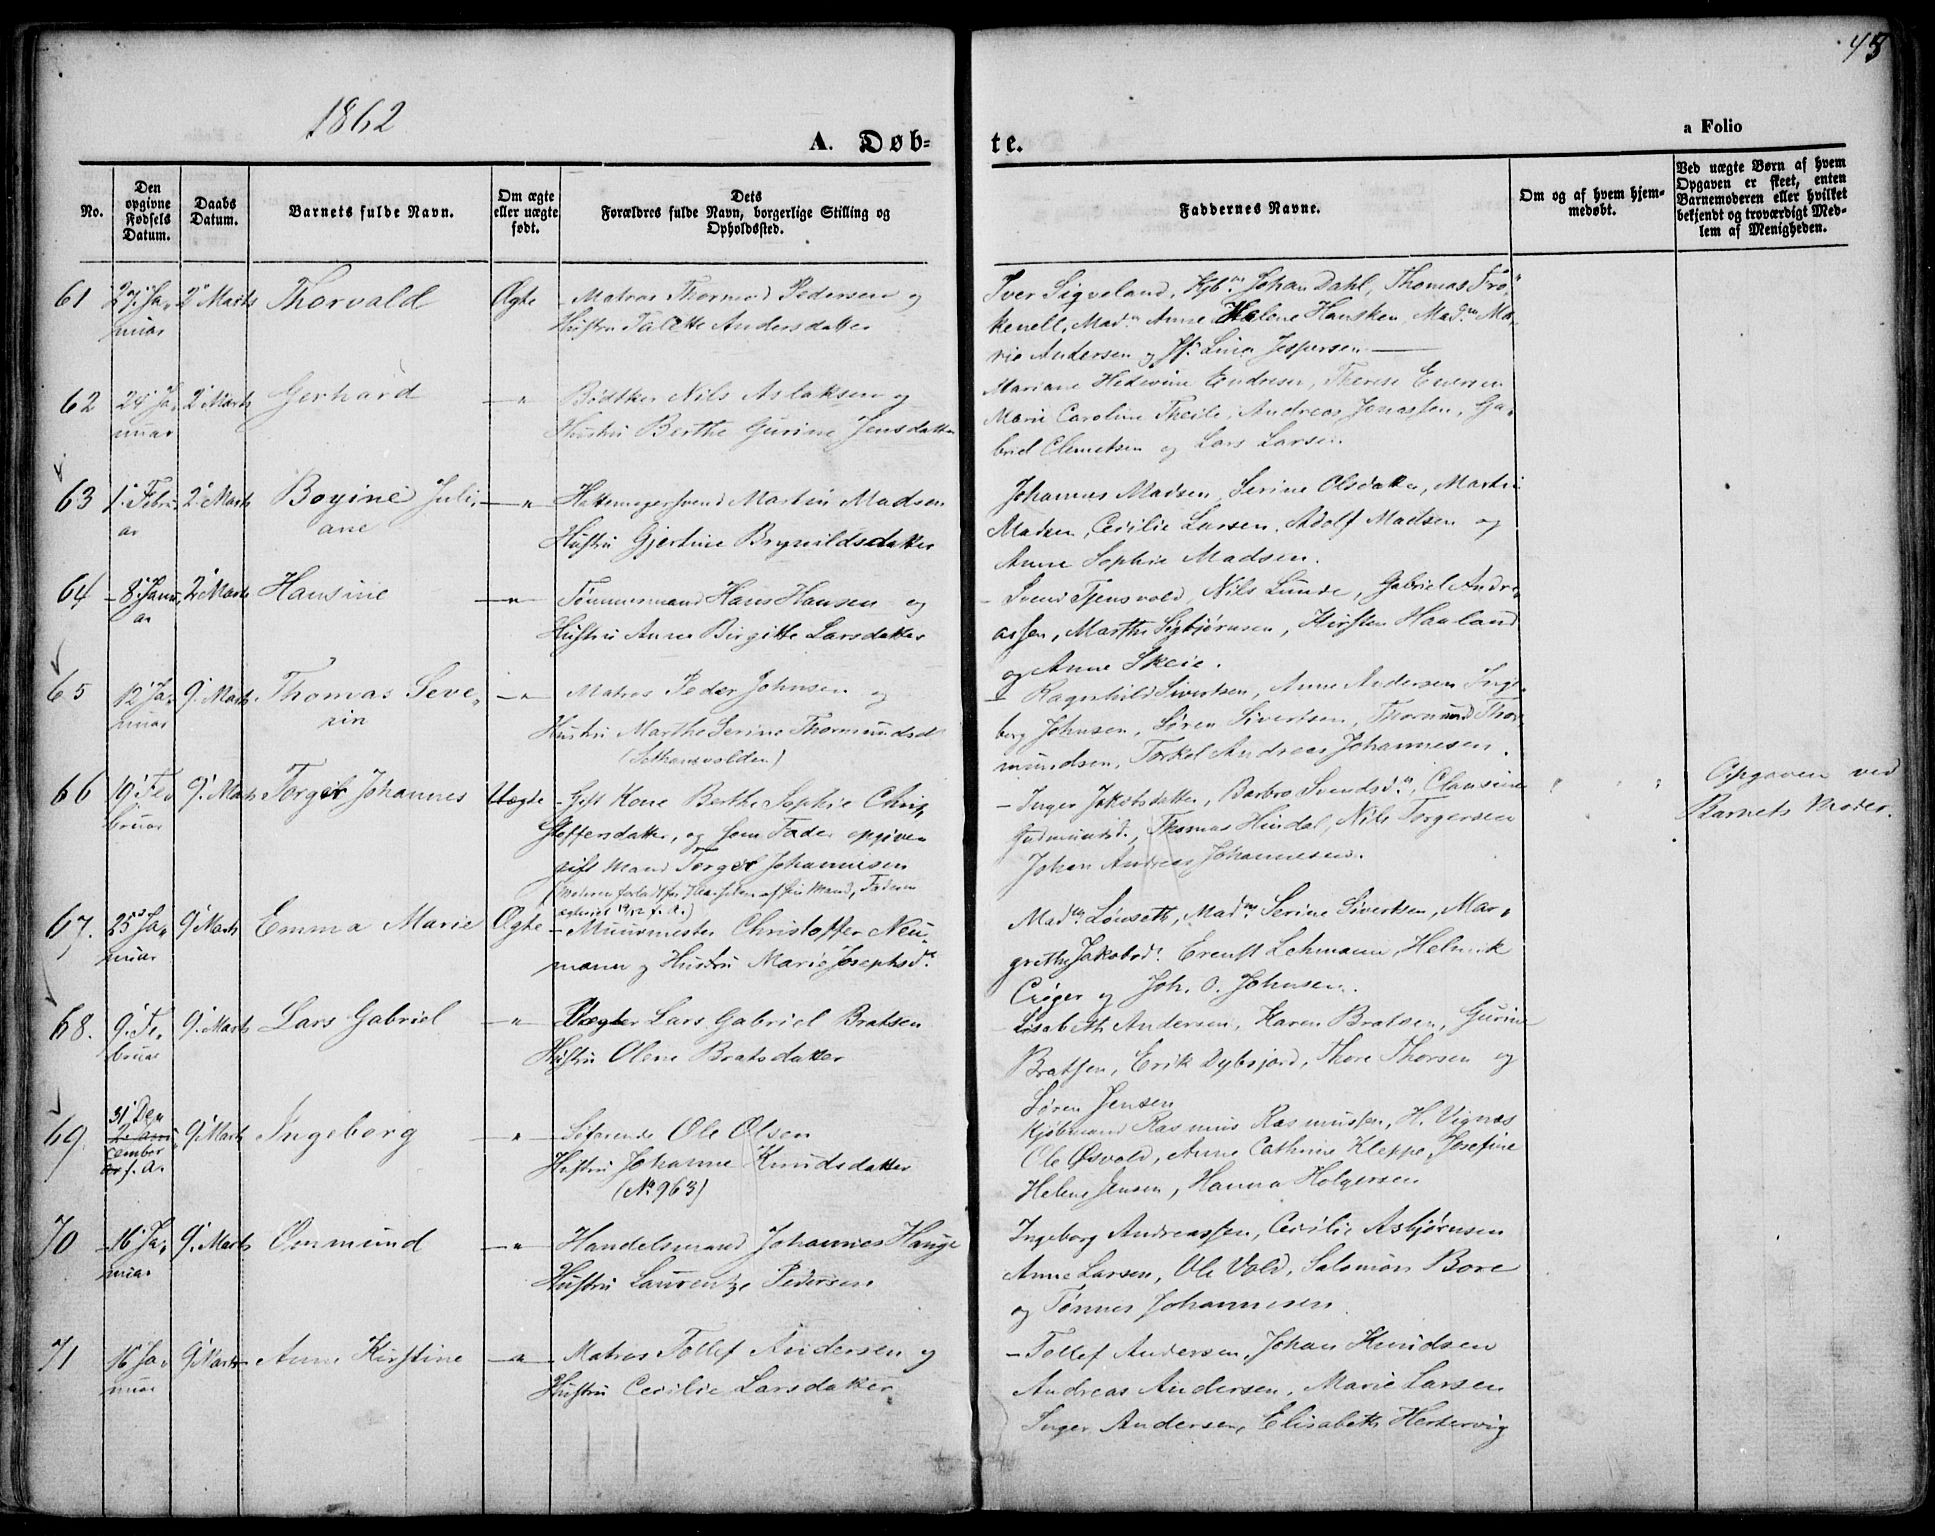 45
1862
a Folio
A. Døb-
te.
No.
Den opgivne Fødsels Datum.
Daabs Datum.
Barnets fulde Navn.
Om ægte eller uægte født.
Dets Forældres fulde Navn, borgerlige Stilling og Opholdssted.
Faddernes Navne.
Om og af hvem hjemmedøbt.
Ved uægte Børn af hvem Opgaven er skeet, enten Barnemoderen eller hvilket bekjendt og troværdigt Medlem af Menigheden.
61 Ja- 2' Marts Thorvald Ægte Matros Thormod Pedersen og
nuar Hustru Talette Andersdatter
Iver Sigveland, Johan Dahl, Thomas Frø-
kenell, Mad. Anne Helene Hansken, Mad. Ma-
rie Andersen og Lina Jespersen
62 24' Ja- 2' Marts Gerhard -"- Bødtker Nils Aslaksen og
nuar Hustru Berthe Gurine Jensdatter
Mariane Hedevine Endresen, Therese Enersen
Marie Caroline Theile, Andreas Jonassen, Ga-
briel Clemetsen og Lars Larsen
63 1' Febru- 2' Marts Boyine Juli- -"- Hattemagersvend Martin Madsen
ar ane Hustru Gjertine Brynildsdatter
Johannes Madsen, Serine Olsdatter, Martin
Madsen, Cecilie Larsen, Adolf Madsen og
Anne Sophie Madsen.
64 8' Janu- 2' Marts Hansine -"- Tømmermand Hans Hansen og
ar Hustru Anne Birgitte Larsdatter
Svend Tjensvold, Nils Lunde, Gabriel Andre-
assen, Marthe Sigbjørnsen, Kirsten Haaland
og Anne Skeie.
65 12' Ja- 9' Marts Thomas Seve- -"- Matros Peder Johnsen og
nuar rin Hustru Marthe Serine Thormundsd.
Ragnhild Sivertsen, Anne Andersen Inge-
borg Johnsen, Søren Sivertsen, Thormund Thor-
mundsen, Torkel Andreas Johannesen.
66 19' Fe- 9' Marts Torger Johannes Uægte Gift Kone Berthe Sophie Chri-
bruar stoffersdatter, og som Fader opgiven
gift Mand Torger Johannesen
Inger Jakobsdatter, Barbro Svendsd., Clausine
Gudmundsd., Thomas Hindal, Nils Torgersen
Johan Andreas Johannesen.
Opgaven ved
Barnets Moder.
67. 25' Ja- 9' Marts Emma Marie Ægte Muurmester Christoffer Neu-
nuar mann og Hustru Marie Josephsd.
Mad. Lønseth, Mad. Serine Sivertsen, Mar-
grethe Jakobsd. Ernst Lehmann, Helmik
Crøger og Joh. O. Johnsen.
68. 9' Fe- 9' Marts Lars Gabriel -"- Vægter Lars Gabriel Bratsen
bruar Hustru Olene Bratsdatter
Lisabeth Andersen, Karen Bratsen, Gurine
Bratsen, Erik Dybsjord, Thore Thorsen og
Søren Jensen
69. 31' De- 9' Marts Ingeborg -"- Søfarende Ole Olsen
cember f. a. Hustru Johanne Knudsdatter
(No 963)
Kjøbmand Rasmus Rasmussen, H. Vignæs
Ole Øsvold, Anne Cathrine Kleppe, Josefine
Helene Jensen, Hanna Holgersen
70 16' Ja- 9' Marts Ommund -"- Handelsmand Johannes Hauge
nuar Hustru Laurentze Pedersen
Ingeborg Andreassen, Cecilie Asbjørnsen
Anne Larsen, Ole Vold, Salomon Bore
og Tønnes Johannesen.
71 16' Ja- 9' Marts Anne Kirstine -"- Matros Tollef Andersen og
nuar Hustru Cecilie Larsdatter
Tollef Andersen, Johan Knudsen
Andreas Andersen, Marie Larsen
Inger Andersen, Elisabeth Hertervig